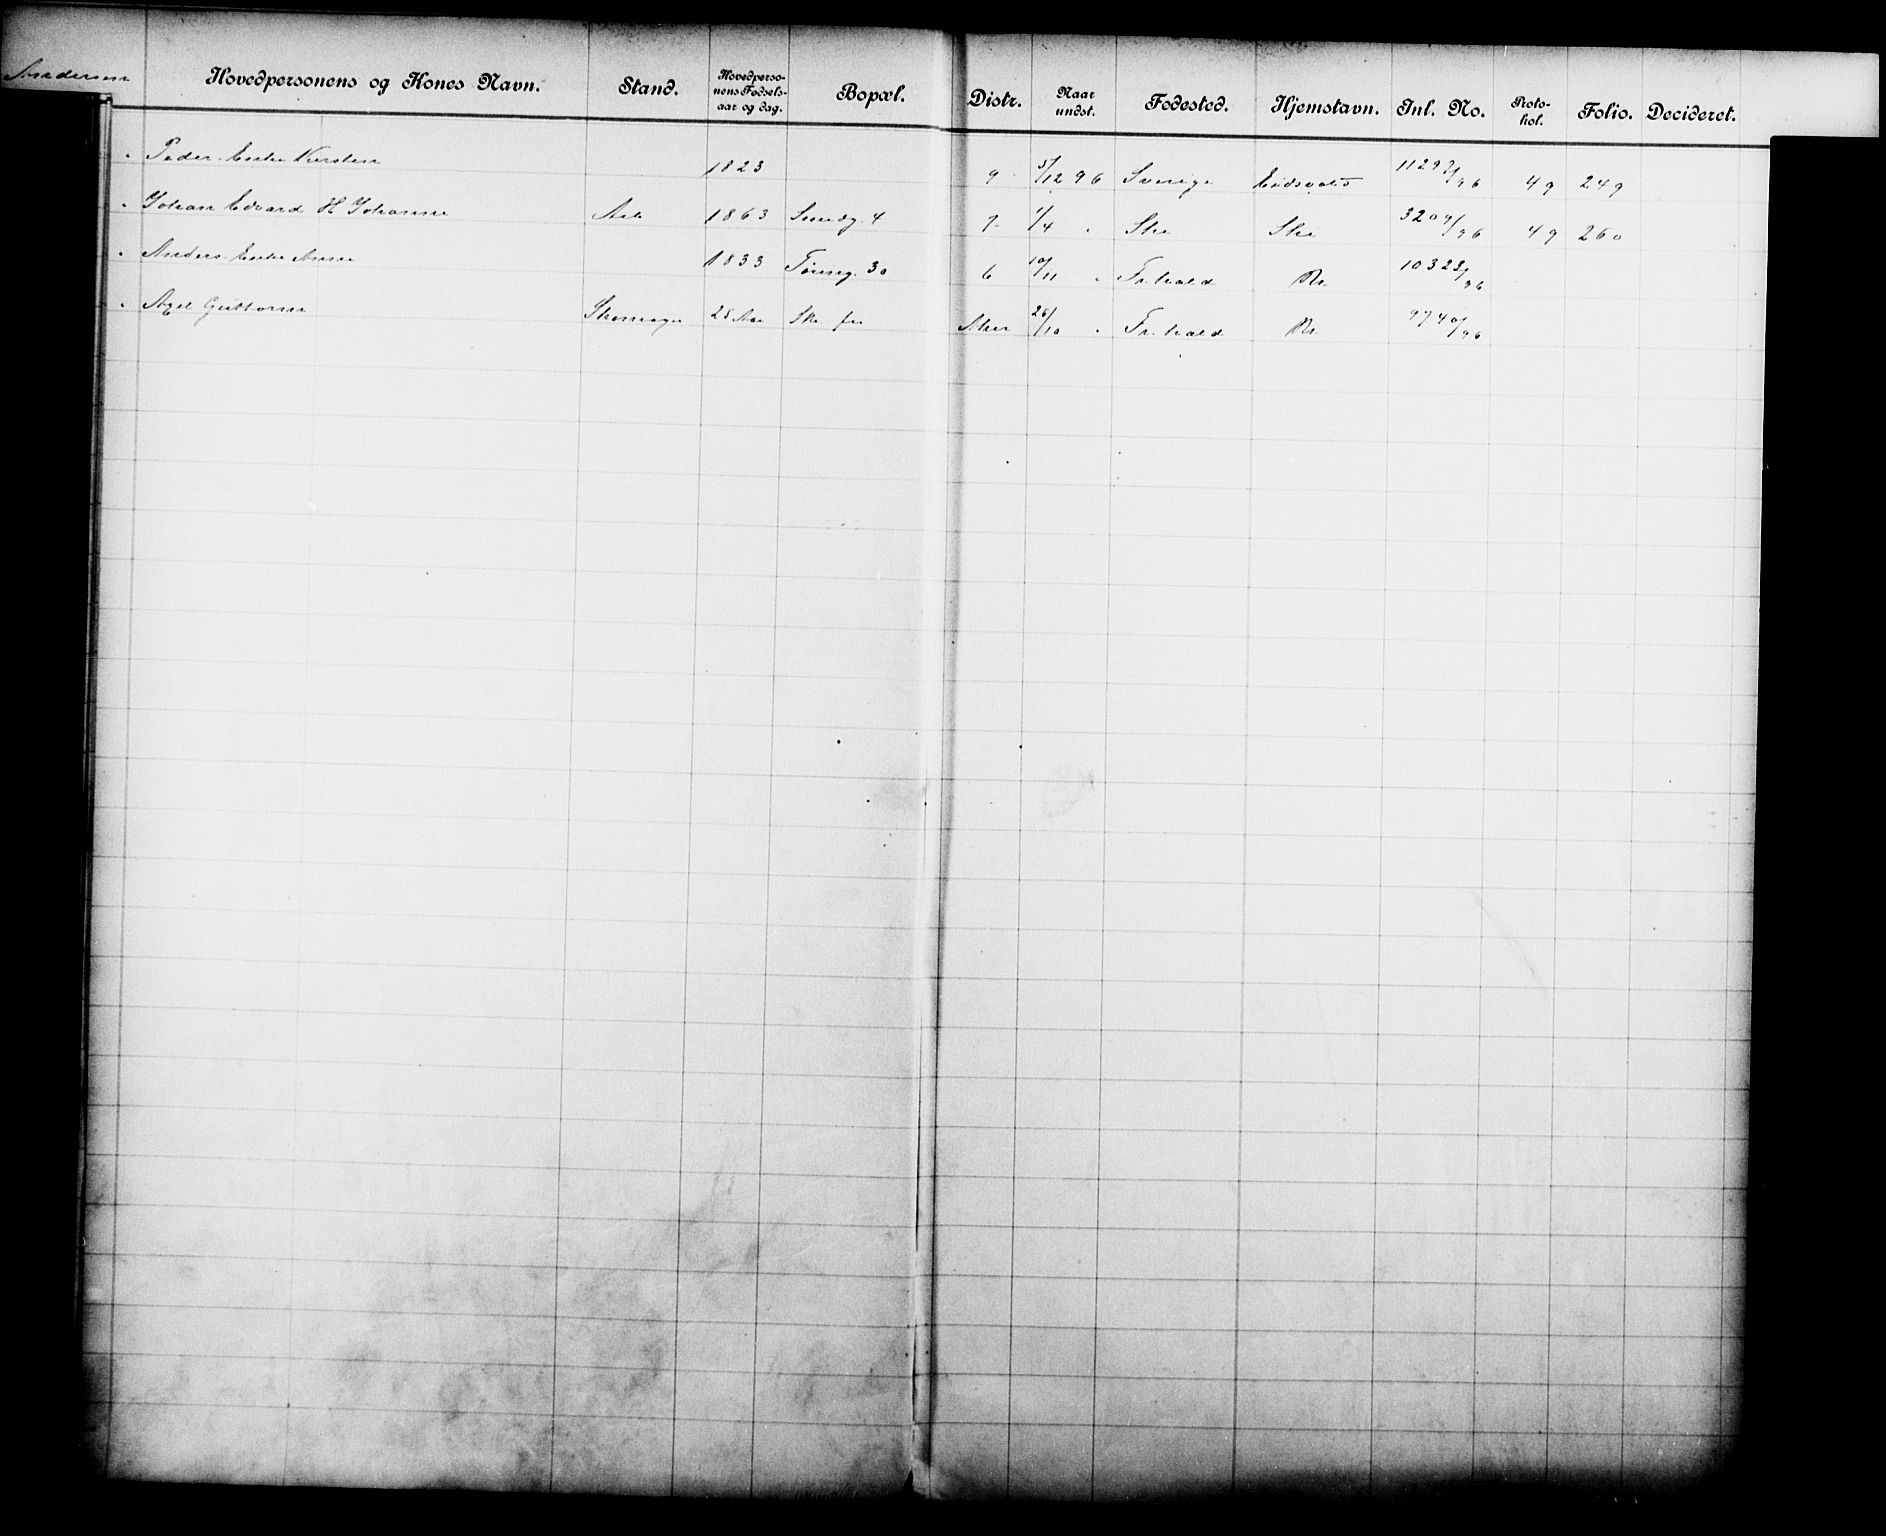 Andersen
Hovedpersonens og Kones Navn. Stand. Hovedpersonens Fødselsaar og dag. Bopæl. Distr. Naar undst. Fødested. Hjemstavn. Inl. No. Protokol. Folio. Decideret.
" Peder Enke Kirsten 1823 9 5/12 96 Sverige Eidsvold 11297/96 49 249
" Johan Edvard H Johanne Arb 1863 Smedg. 4 7 1/4 " Ske Ske 3209/96 49 260
" Anders Enke Anne 1833 Tøieng. 30 6 10/11 " Fr.hald 10323/96
" Axel Guttorm Skomager 25 Aar Ske Aker 26/10 " Fr.hald 9740/96